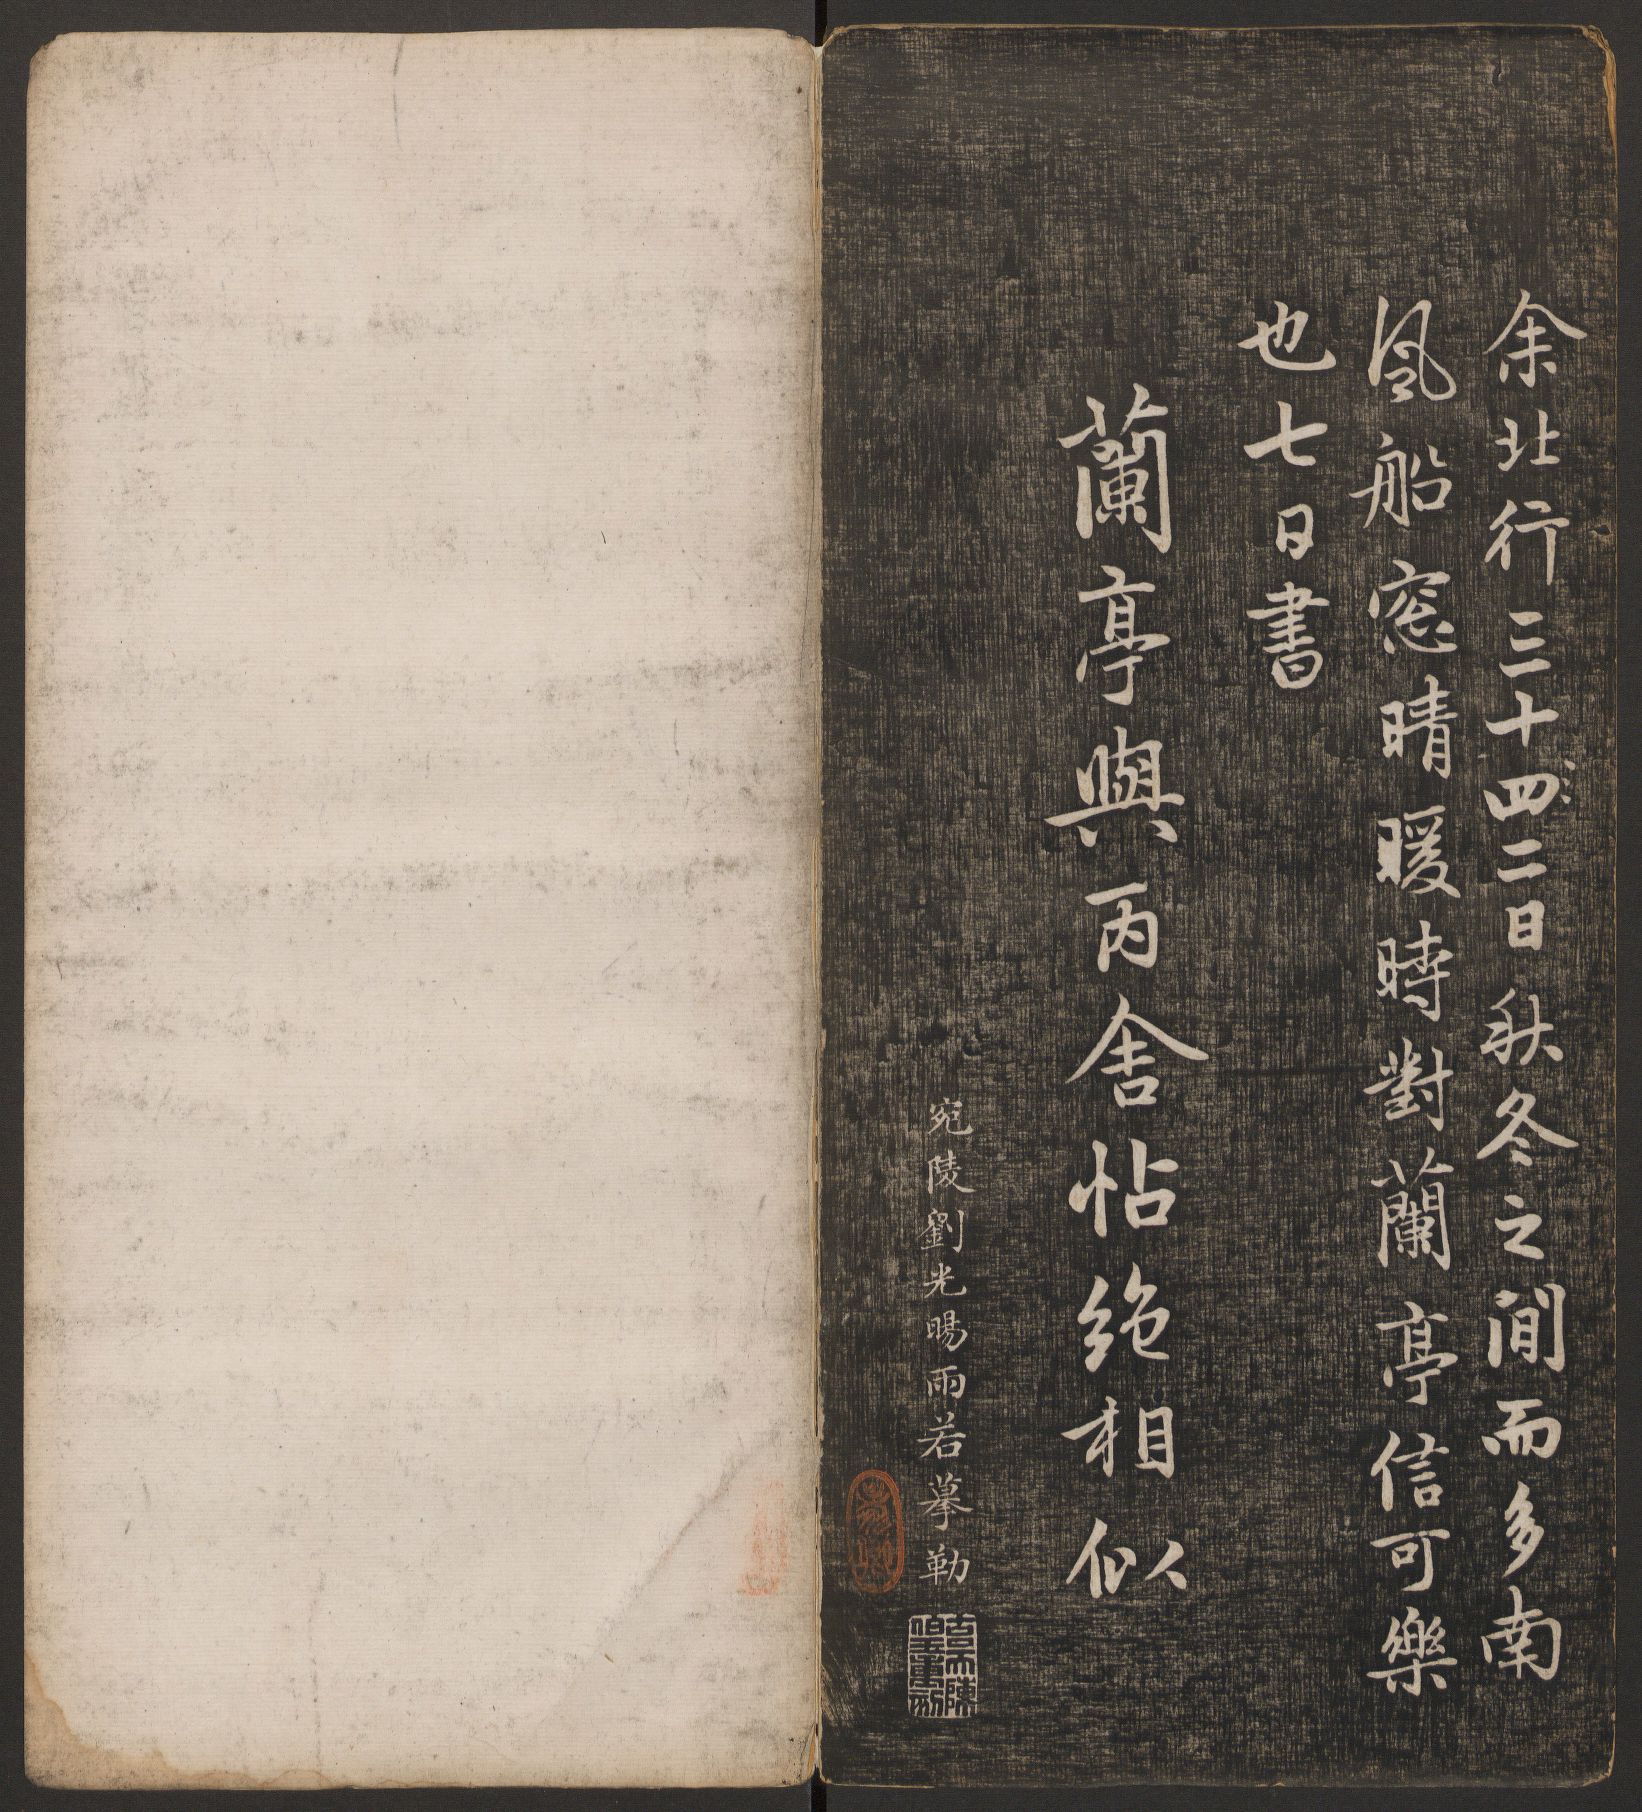 余北行三十四二日秋冬之間而多南
風船窓晴暖時對蘭亭信可樂
也七日書
蘭亭與丙舍帖绝相似
宛陵劉光暘雨若摹勒